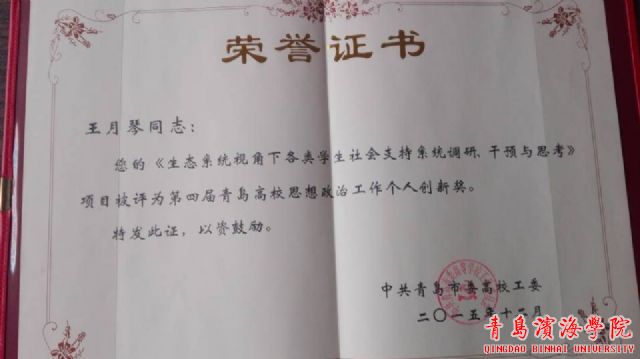 荣誉证书
王月琴同志：
您的《生态系统视角下各类学生社会支持系统调研、干预与思考》
项目被评为第四届青岛高校思想政治工作个人创新奖。
特发此证，以资鼓励。
中共青岛市委高校工委
二〇一五年十二月
青島濱海學院
QINGDAO BINHAI UNIVERSITY